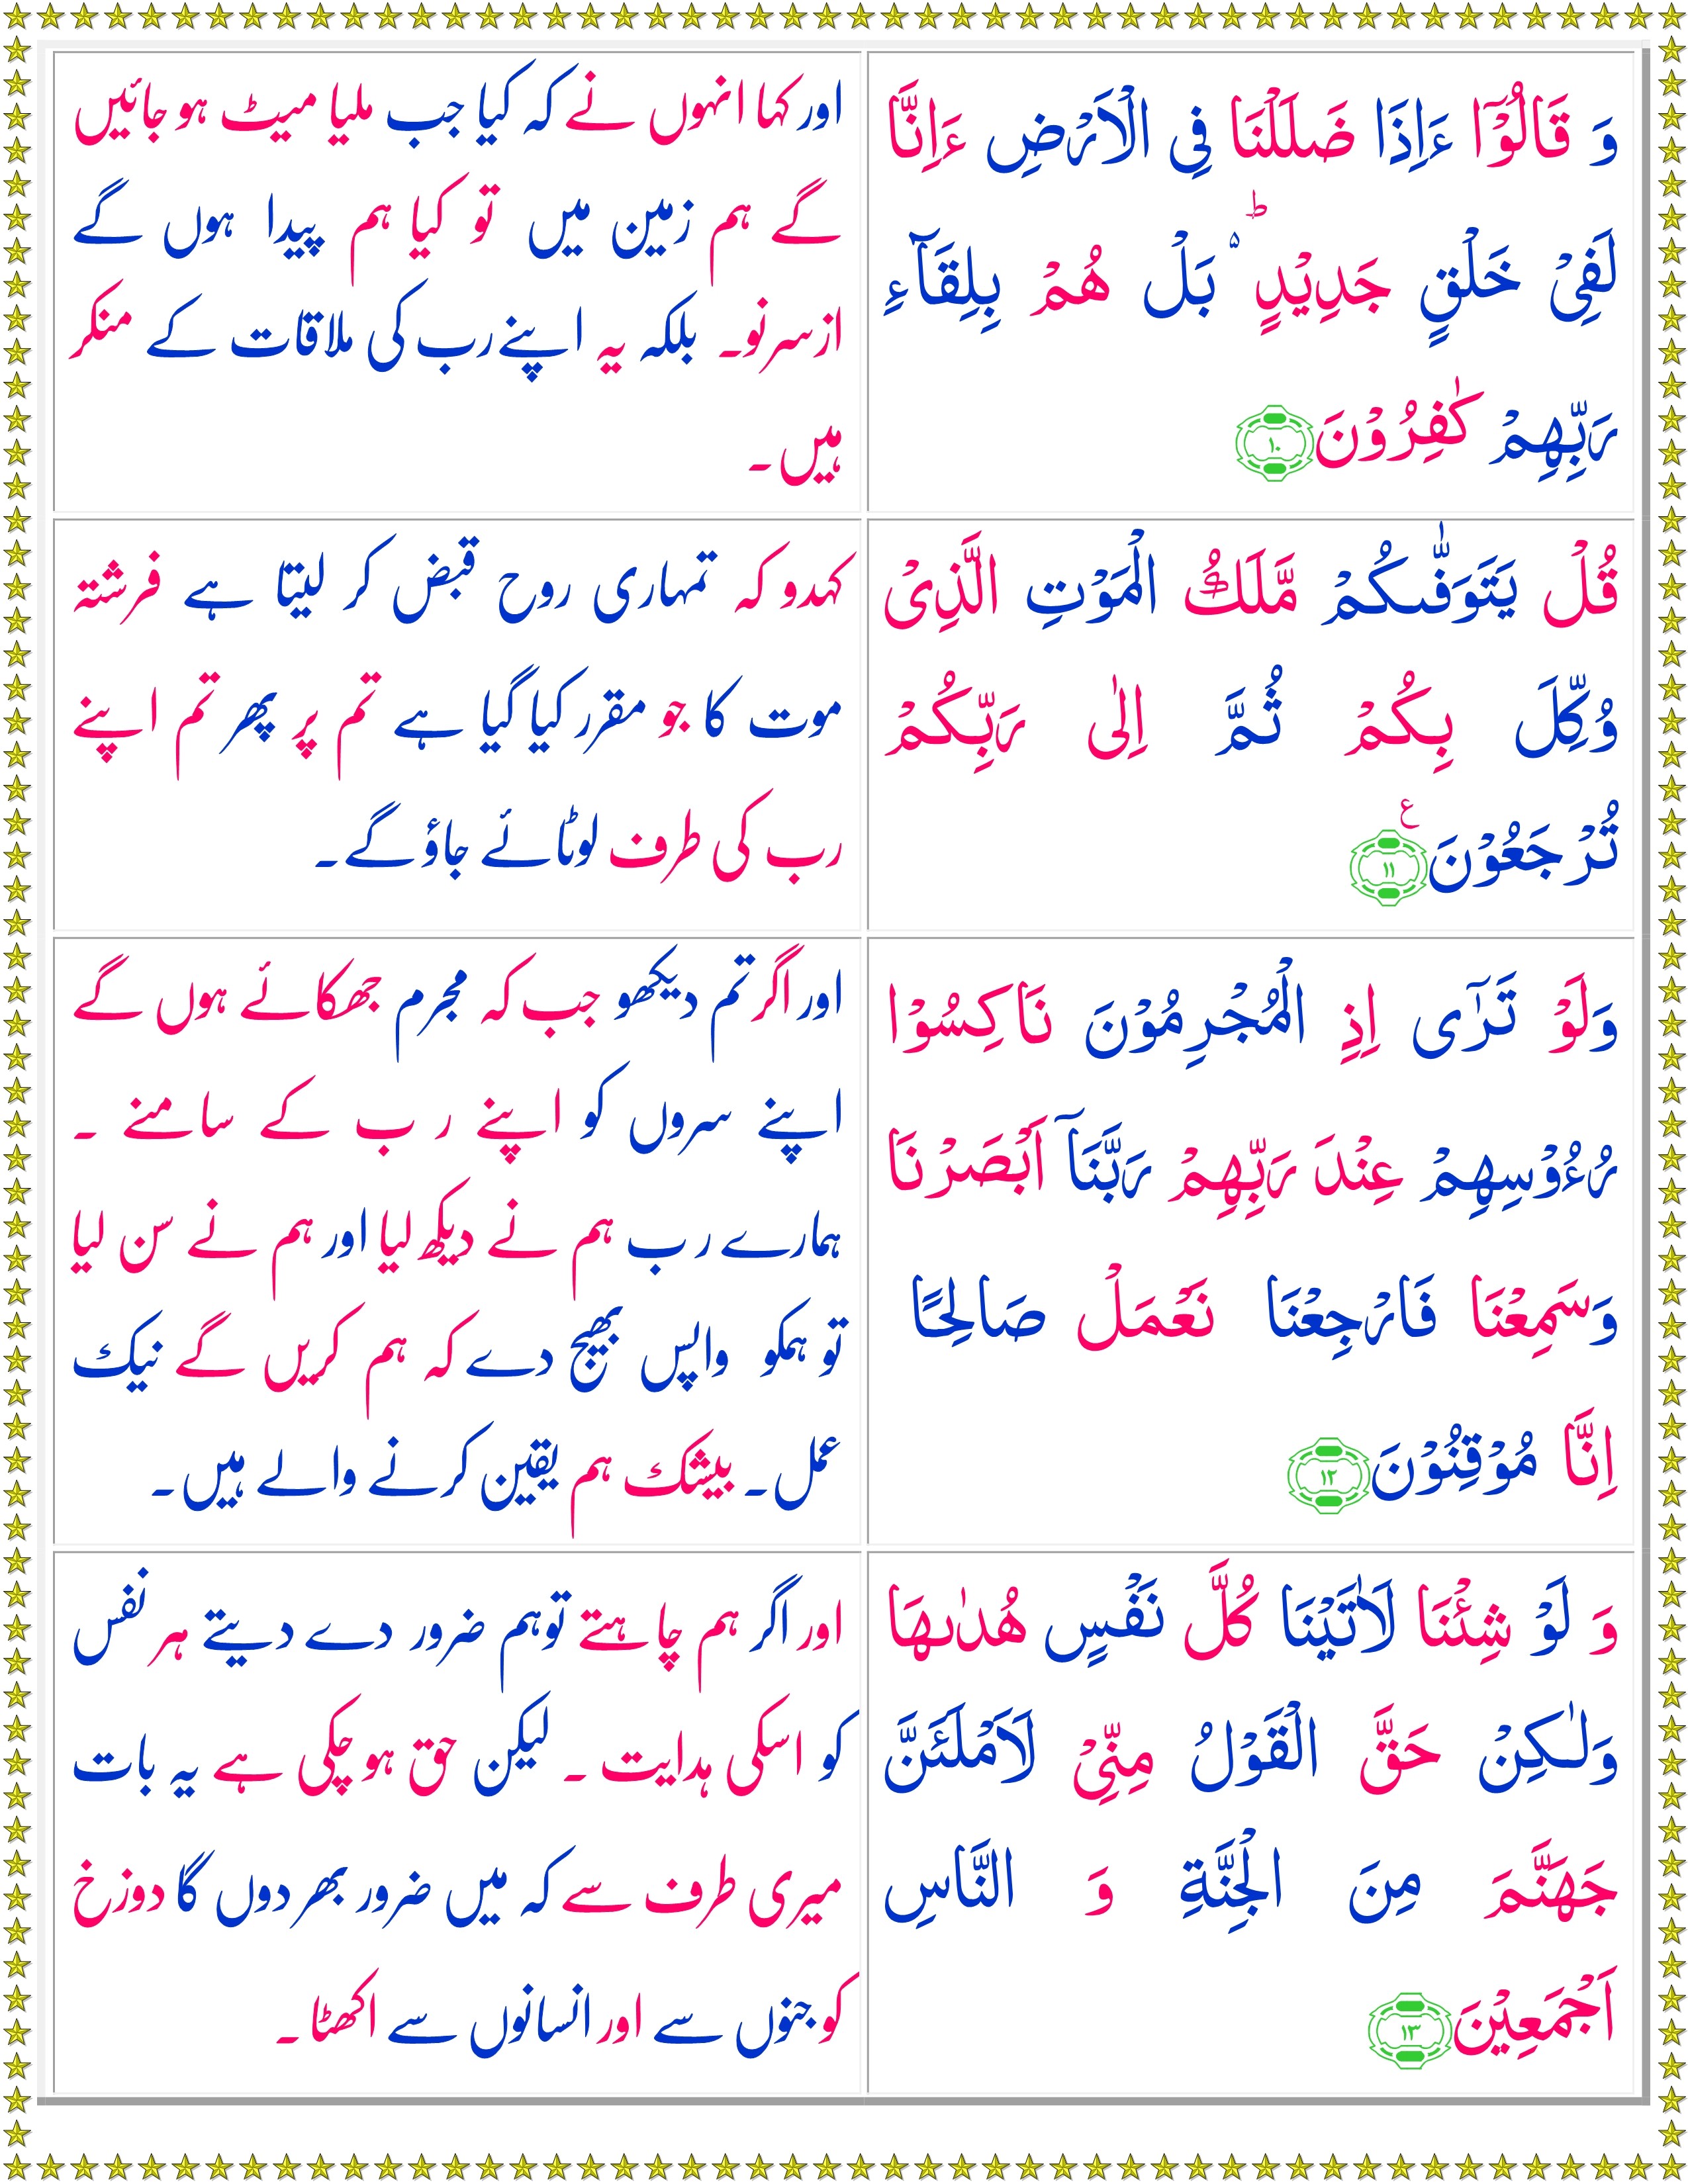 وَ قَالُوْۤا ءَاِذَا ضَلَلْنَا فِی الْاَرْضِ ءَاِنَّا
لَفِیْ خَلْقٍ جَدِیْدٍ ؕ۬ بَلْ هُمْ بِلِقَآءِ
رَبِّهِمْ كٰفِرُوْنَ ۱۰
اور کہا انہوں نے کہ کیا جب ملیا میٹ ہو جائیں
گے ہم زمین میں تو کیا ہم پیدا ہوں گے
ازسرنو۔ بلکہ یہ اپنے رب کی ملاقات کے منکر
ہیں۔
قُلْ یَتَوَفّٰىكُمْ مَّلَكُ الْمَوْتِ الَّذِیْ
وُكِّلَ بِكُمْ ثُمَّ اِلٰی رَبِّكُمْ
تُرْجَعُوْنَ ۱۱ ع
کہدو کہ تمہاری روح قبض کر لیتا ہے فرشتہ
موت کا جو مقرر کیا گیا ہے تم پر پھر تم اپنے
رب کی طرف لوٹائے جاؤ گے۔
وَلَوْ تَرٰۤی اِذِ الْمُجْرِمُوْنَ نَاكِسُوْا
رُءُوْسِهِمْ عِنْدَ رَبِّهِمْ رَبَّنَاۤ اَبْصَرْنَا
وَسَمِعْنَا فَارْجِعْنَا نَعْمَلْ صَالِحًا
اِنَّا مُوْقِنُوْنَ ۱۲
اور اگر تم دیکھو جب کہ مجرم جھکائے ہوں گے
اپنے سروں کو اپنے رب کے سامنے ۔
ہمارے رب ہم نے دیکھ لیا اور ہم نے سن لیا
تو ہمکو واپس بھیج دے کہ ہم کریں گے نیک
عمل۔ بیشک ہم یقین کرنے والے ہیں۔
وَ لَوْ شِئْنَا لَاٰتَیْنَا كُلَّ نَفْسٍ هُدٰىهَا
وَلٰكِنْ حَقَّ الْقَوْلُ مِنِّیْ لَاَمْلَئَنَّ
جَهَنَّمَ مِنَ الْجِنَّةِ وَ النَّاسِ
اَجْمَعِیْنَ ۱۳
اور اگر ہم چاہتے تو ہم ضرور دے دیتے ہر نفس
کو اسکی ہدایت ۔ لیکن حق ہو چکی ہے یہ بات
میری طرف سے کہ میں ضرور بھر دوں گا دوزخ
کو جنوں سے اور انسانوں سے اکھٹا۔